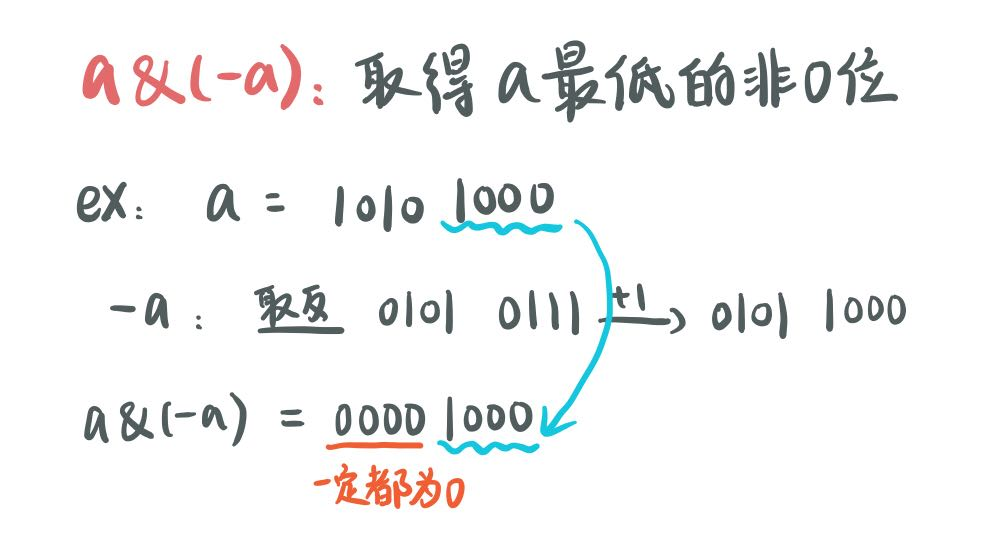 a&(-a): 取得a最低的非0位
ex: a = 1010 1000
-a: 取反 0101 0111 +1 0101 1000
a&(-a) = 0000 1000
一定都为0